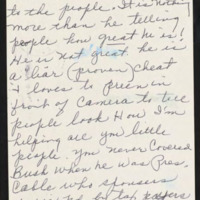 to the people. It is nothing
more than he telling
people how great he is!
He is not great he is
a liar (proven) cheat
& loves to preen in
front of camera to tell
people look How I'm
helping all you little
people. you never Covered
Bush when he was Pres.
Cable who sponsers
by tax payers